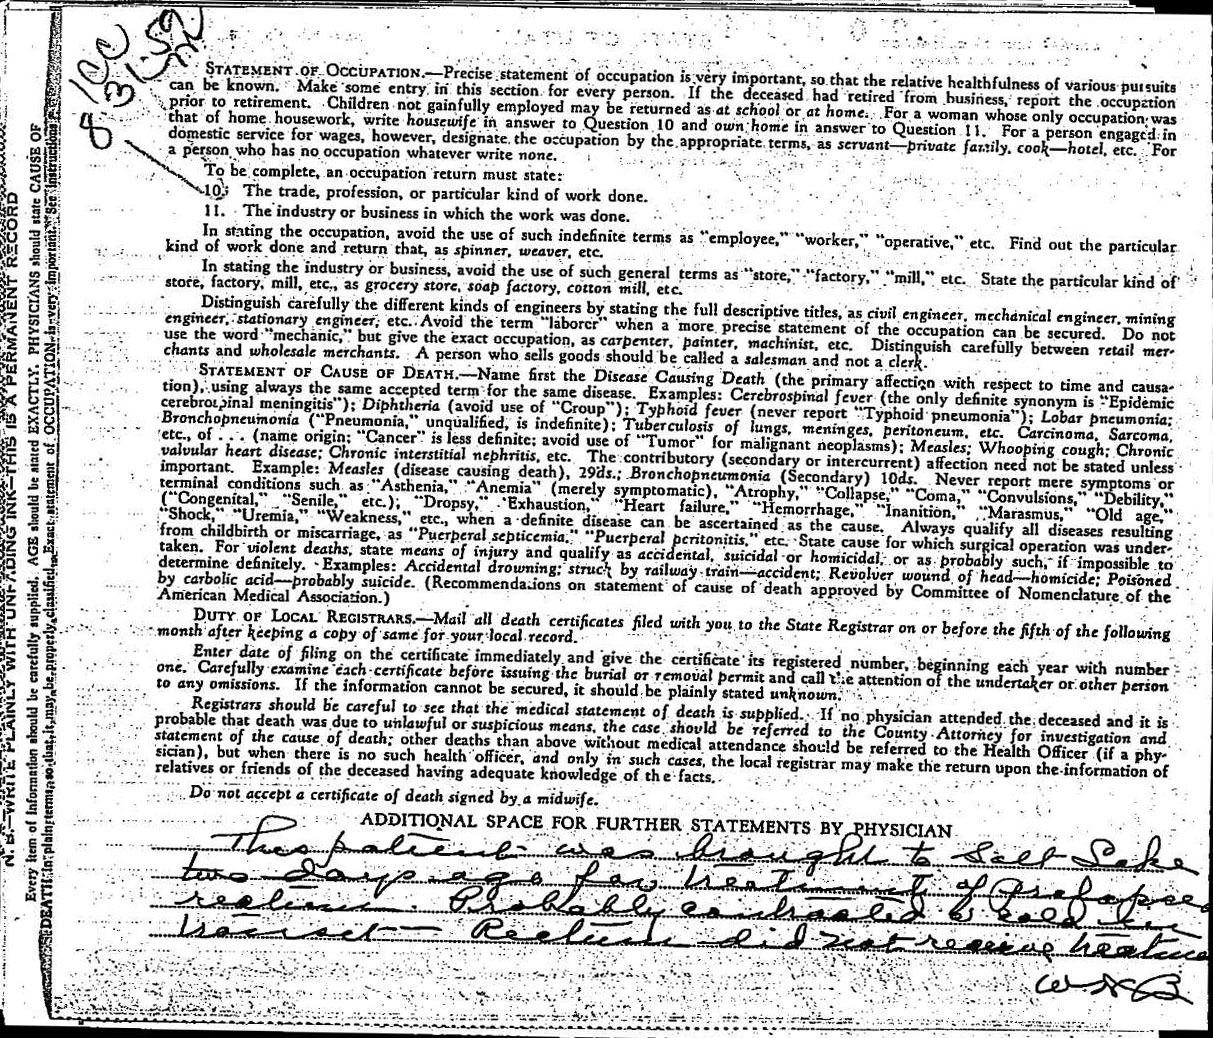 100
31-52
8
STATEMENT OF OCCUPATION.—Precise statement of occupation is very important, so that the relative healthfulness of various pursuits
can be known. Make some entry in this section for every person. If the deceased had retired from business, report the occupation
prior to retirement. Children not gainfully employed may be returned as at school or at home. For a woman whose only occupation was
that of home housework, write housewife in answer to Question 10 and own home in answer to Question 11. For a person engaged in
domestic service for wages, however, designate the occupation by the appropriate terms, as servant—private family, cook—hotel, etc. For
a person who has no occupation whatever write none.
To be complete, an occupation return must state:
10. The trade, profession, or particular kind of work done.
11. The industry or business in which the work was done.
In stating the occupation, avoid the use of such indefinite terms as "employee," "worker," "operative," etc. Find out the particular
kind of work done and return that, as spinner, weaver, etc.
In stating the industry or business, avoid the use of such general terms as "store," "factory," "mill," etc. State the particular kind of
store, factory, mill, etc., as grocery store, soap factory, cotton mill, etc.
Distinguish carefully the different kinds of engineers by stating the full descriptive titles, as civil engineer, mechanical engineer, mining
engineer, stationary engineer, etc. Avoid the term "laborer" when a more precise statement of the occupation can be secured. Do not
use the word "mechanic," but give the exact occupation, as carpenter, painter, machinist, etc. Distinguish carefully between retail mer-
chants and wholesale merchants. A person who sells goods should be called a salesman and not a clerk.
STATEMENT OF CAUSE OF DEATH.—Name first the Disease Causing Death (the primary affection with respect to time and causa-
tion), using always the same accepted term for the same disease. Examples: Cerebrospinal fever (the only definite synonym is "Epidemic
cerebrospinal meningitis"); Diphtheria (avoid use of "Croup"); Typhoid fever (never report "Typhoid pneumonia"); Lobar pneumonia;
Bronchopneumonia ("Pneumonia," unqualified, is indefinite); Tuberculosis of lungs, meninges, peritoneum, etc. Carcinoma, Sarcoma,
etc., of . . . (name origin; "Cancer" is less definite; avoid use of "Tumor" for malignant neoplasms); Measles; Whooping cough; Chronic
valvular heart disease; Chronic interstitial nephritis, etc. The contributory (secondary or intercurrent) affection need not be stated unless
important. Example: Measles (disease causing death), 29ds.; Bronchopneumonia (Secondary) 10ds. Never report mere symptoms or
terminal conditions such as "Asthenia," "Anemia" (merely symptomatic), "Atrophy," "Collapse," "Coma," "Convulsions," "Debility,"
("Congenital," "Senile," etc.); "Dropsy," "Exhaustion," "Heart failure," "Hemorrhage," "Inanition," "Marasmus," "Old age,"
"Shock," "Uremia," "Weakness," etc., when a definite disease can be ascertained as the cause. Always qualify all diseases resulting
from childbirth or miscarriage, as "Puerperal septicemia," "Puerperal peritonitis," etc. State cause for which surgical operation was under-
taken. For violent deaths, state means of injury and qualify as accidental, suicidal or homicidal, or as probably such, if impossible to
determine definitely. Examples: Accidental drowning; struck by railway train—accident; Revolver wound of head—homicide; Poisoned
by carbolic acid—probably suicide. (Recommendations on statement of cause of death approved by Committee of Nomenclature of the
American Medical Association.)
DUTY OF LOCAL REGISTRARS.—Mail all death certificates filed with you to the State Registrar on or before the fifth of the following
month after keeping a copy of same for your local record.
Enter date of filing on the certificate immediately and give the certificate its registered number, beginning each year with number
one. Carefully examine each certificate before issuing the burial or removal permit and call the attention of the undertaker or other person
to any omissions. If the information cannot be secured, it should be plainly stated unknown.
Registrars should be careful to see that the medical statement of death is supplied. If no physician attended the deceased and it is
probable that death was due to unlawful or suspicious means, the case should be referred to the County Attorney for investigation and
statement of the cause of death; other deaths than above without medical attendance should be referred to the Health Officer (if a phy-
sician), but when there is no such health officer, and only in such cases, the local registrar may make the return upon the information of
relatives or friends of the deceased having adequate knowledge of the facts.
Do not accept a certificate of death signed by a midwife.
ADDITIONAL SPACE FOR FURTHER STATEMENTS BY PHYSICIAN
This patient was brought to Salt Lake
two days ago for treatment of Prolapsed
rectum. Probably contracted a cold in
transit — Rectum did not receive treatme
N. B.—WRITE PLAINLY WITH UNFADING INK—THIS IS A PERMANENT RECORD
Every item of information should be carefully supplied. AGE should be stated EXACTLY. PHYSICIANS should state CAUSE OF
DEATH in plain terms, so that it may be properly classified. Exact statement of OCCUPATION is very important. See instructions